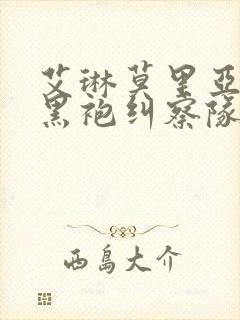 艾琳莫里亚
黑袍纠察队
西島大介